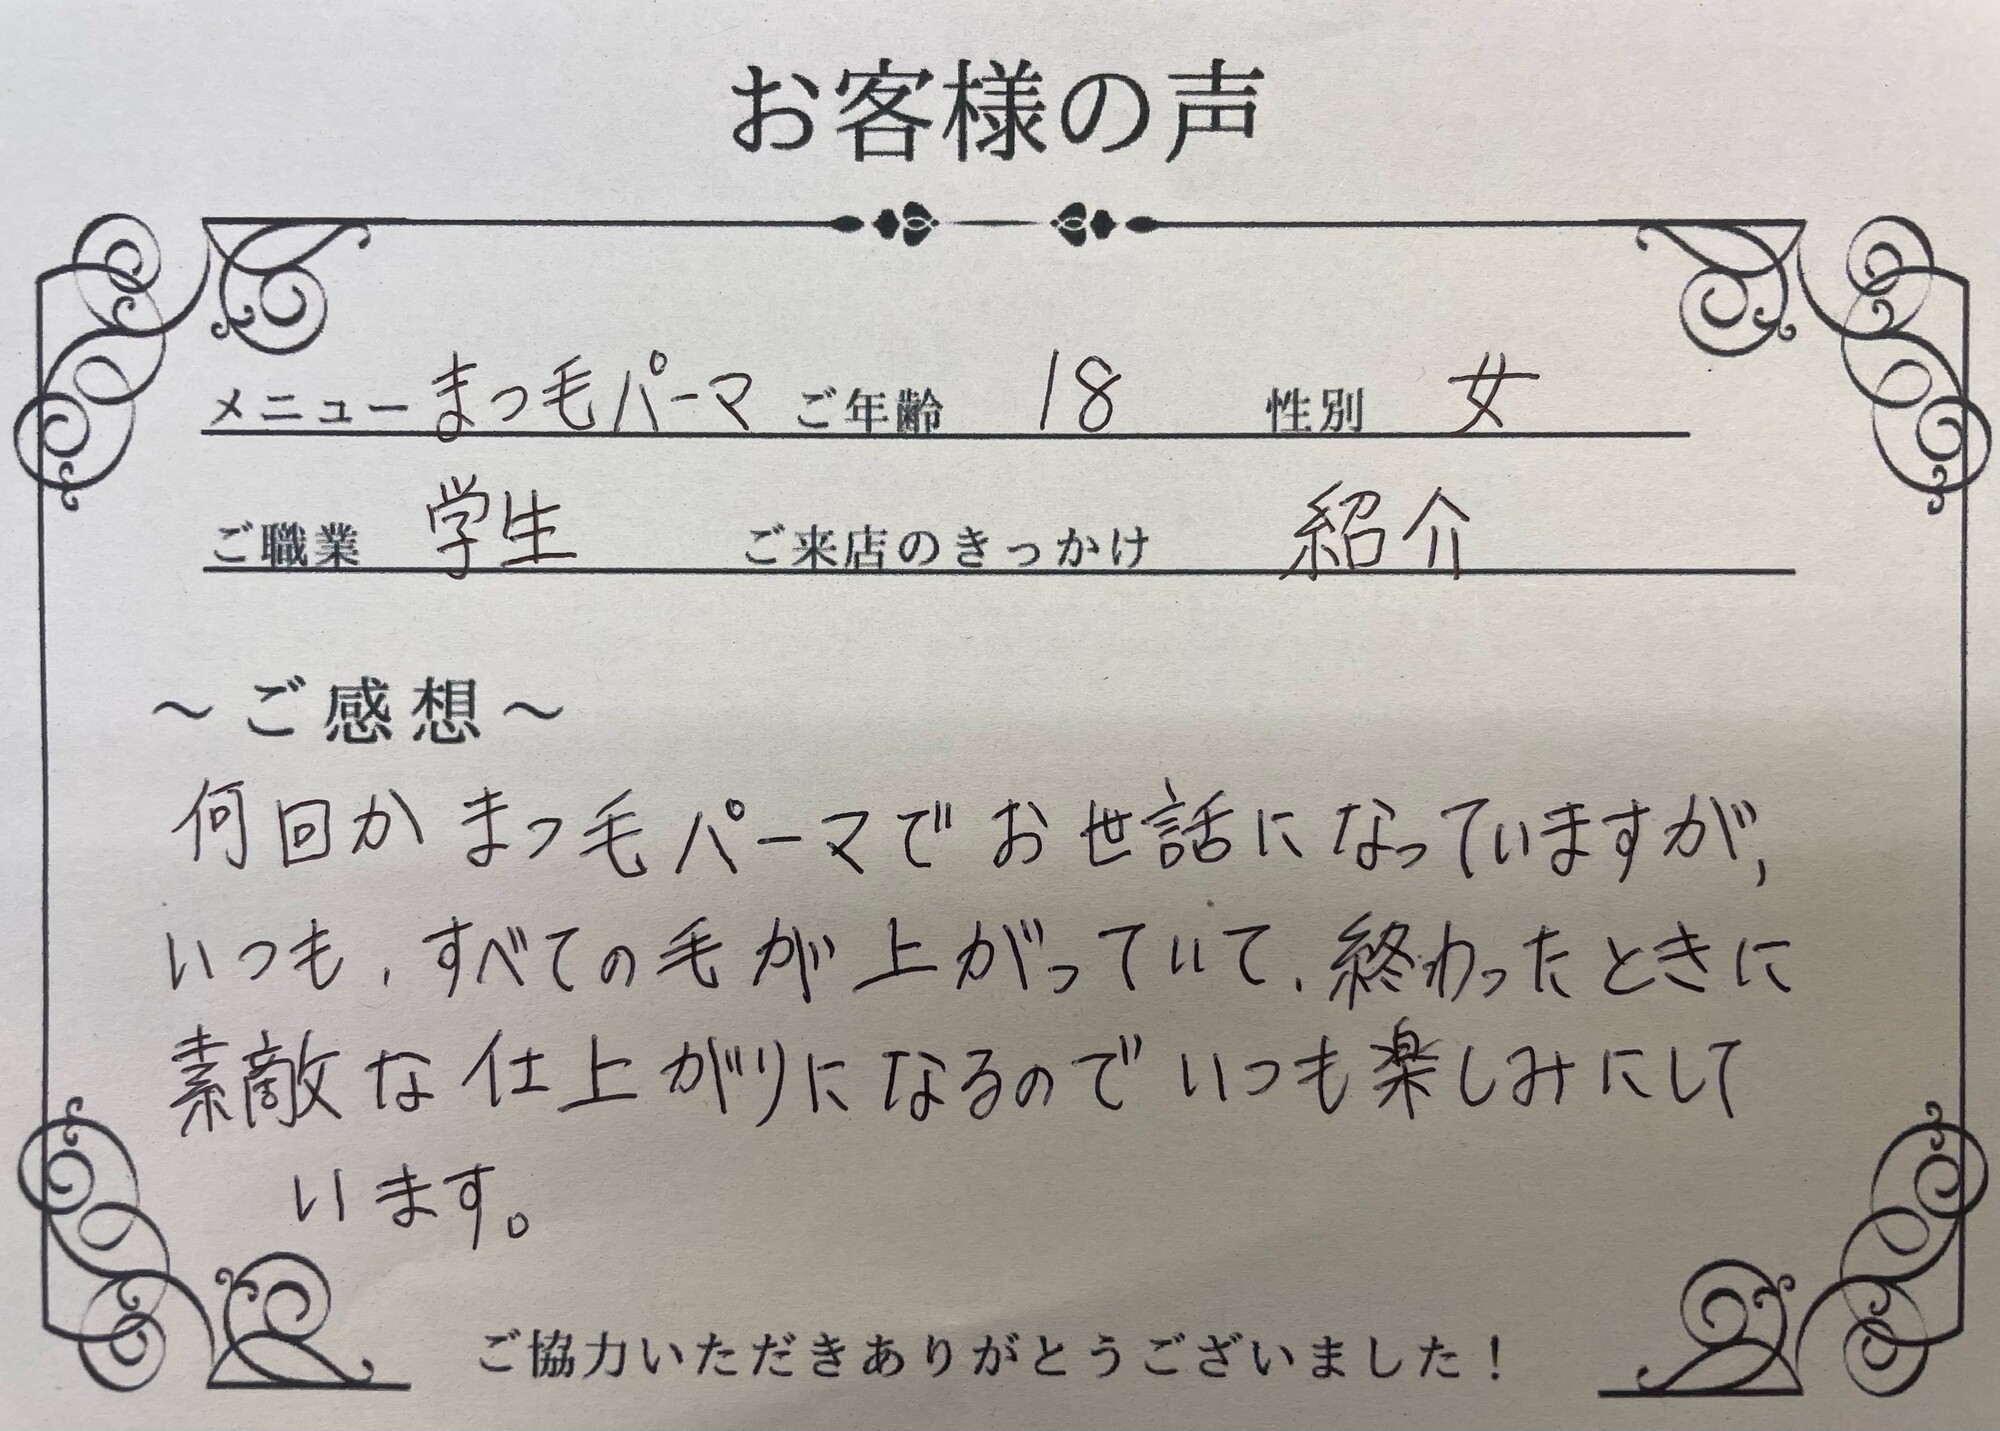 お客様の声
メニュー まつ毛パーマ ご年齢 18 性別 女
ご職業 学生 ご来店のきっかけ 紹介
～ご感想～
何回か まつ毛パーマで お世話になっていますが、
いつも、すべての毛が上がっていて、終わったときに
素敵な仕上がりになるのでいつも楽しみにして
います。
ご協力いただきありがとうございました！